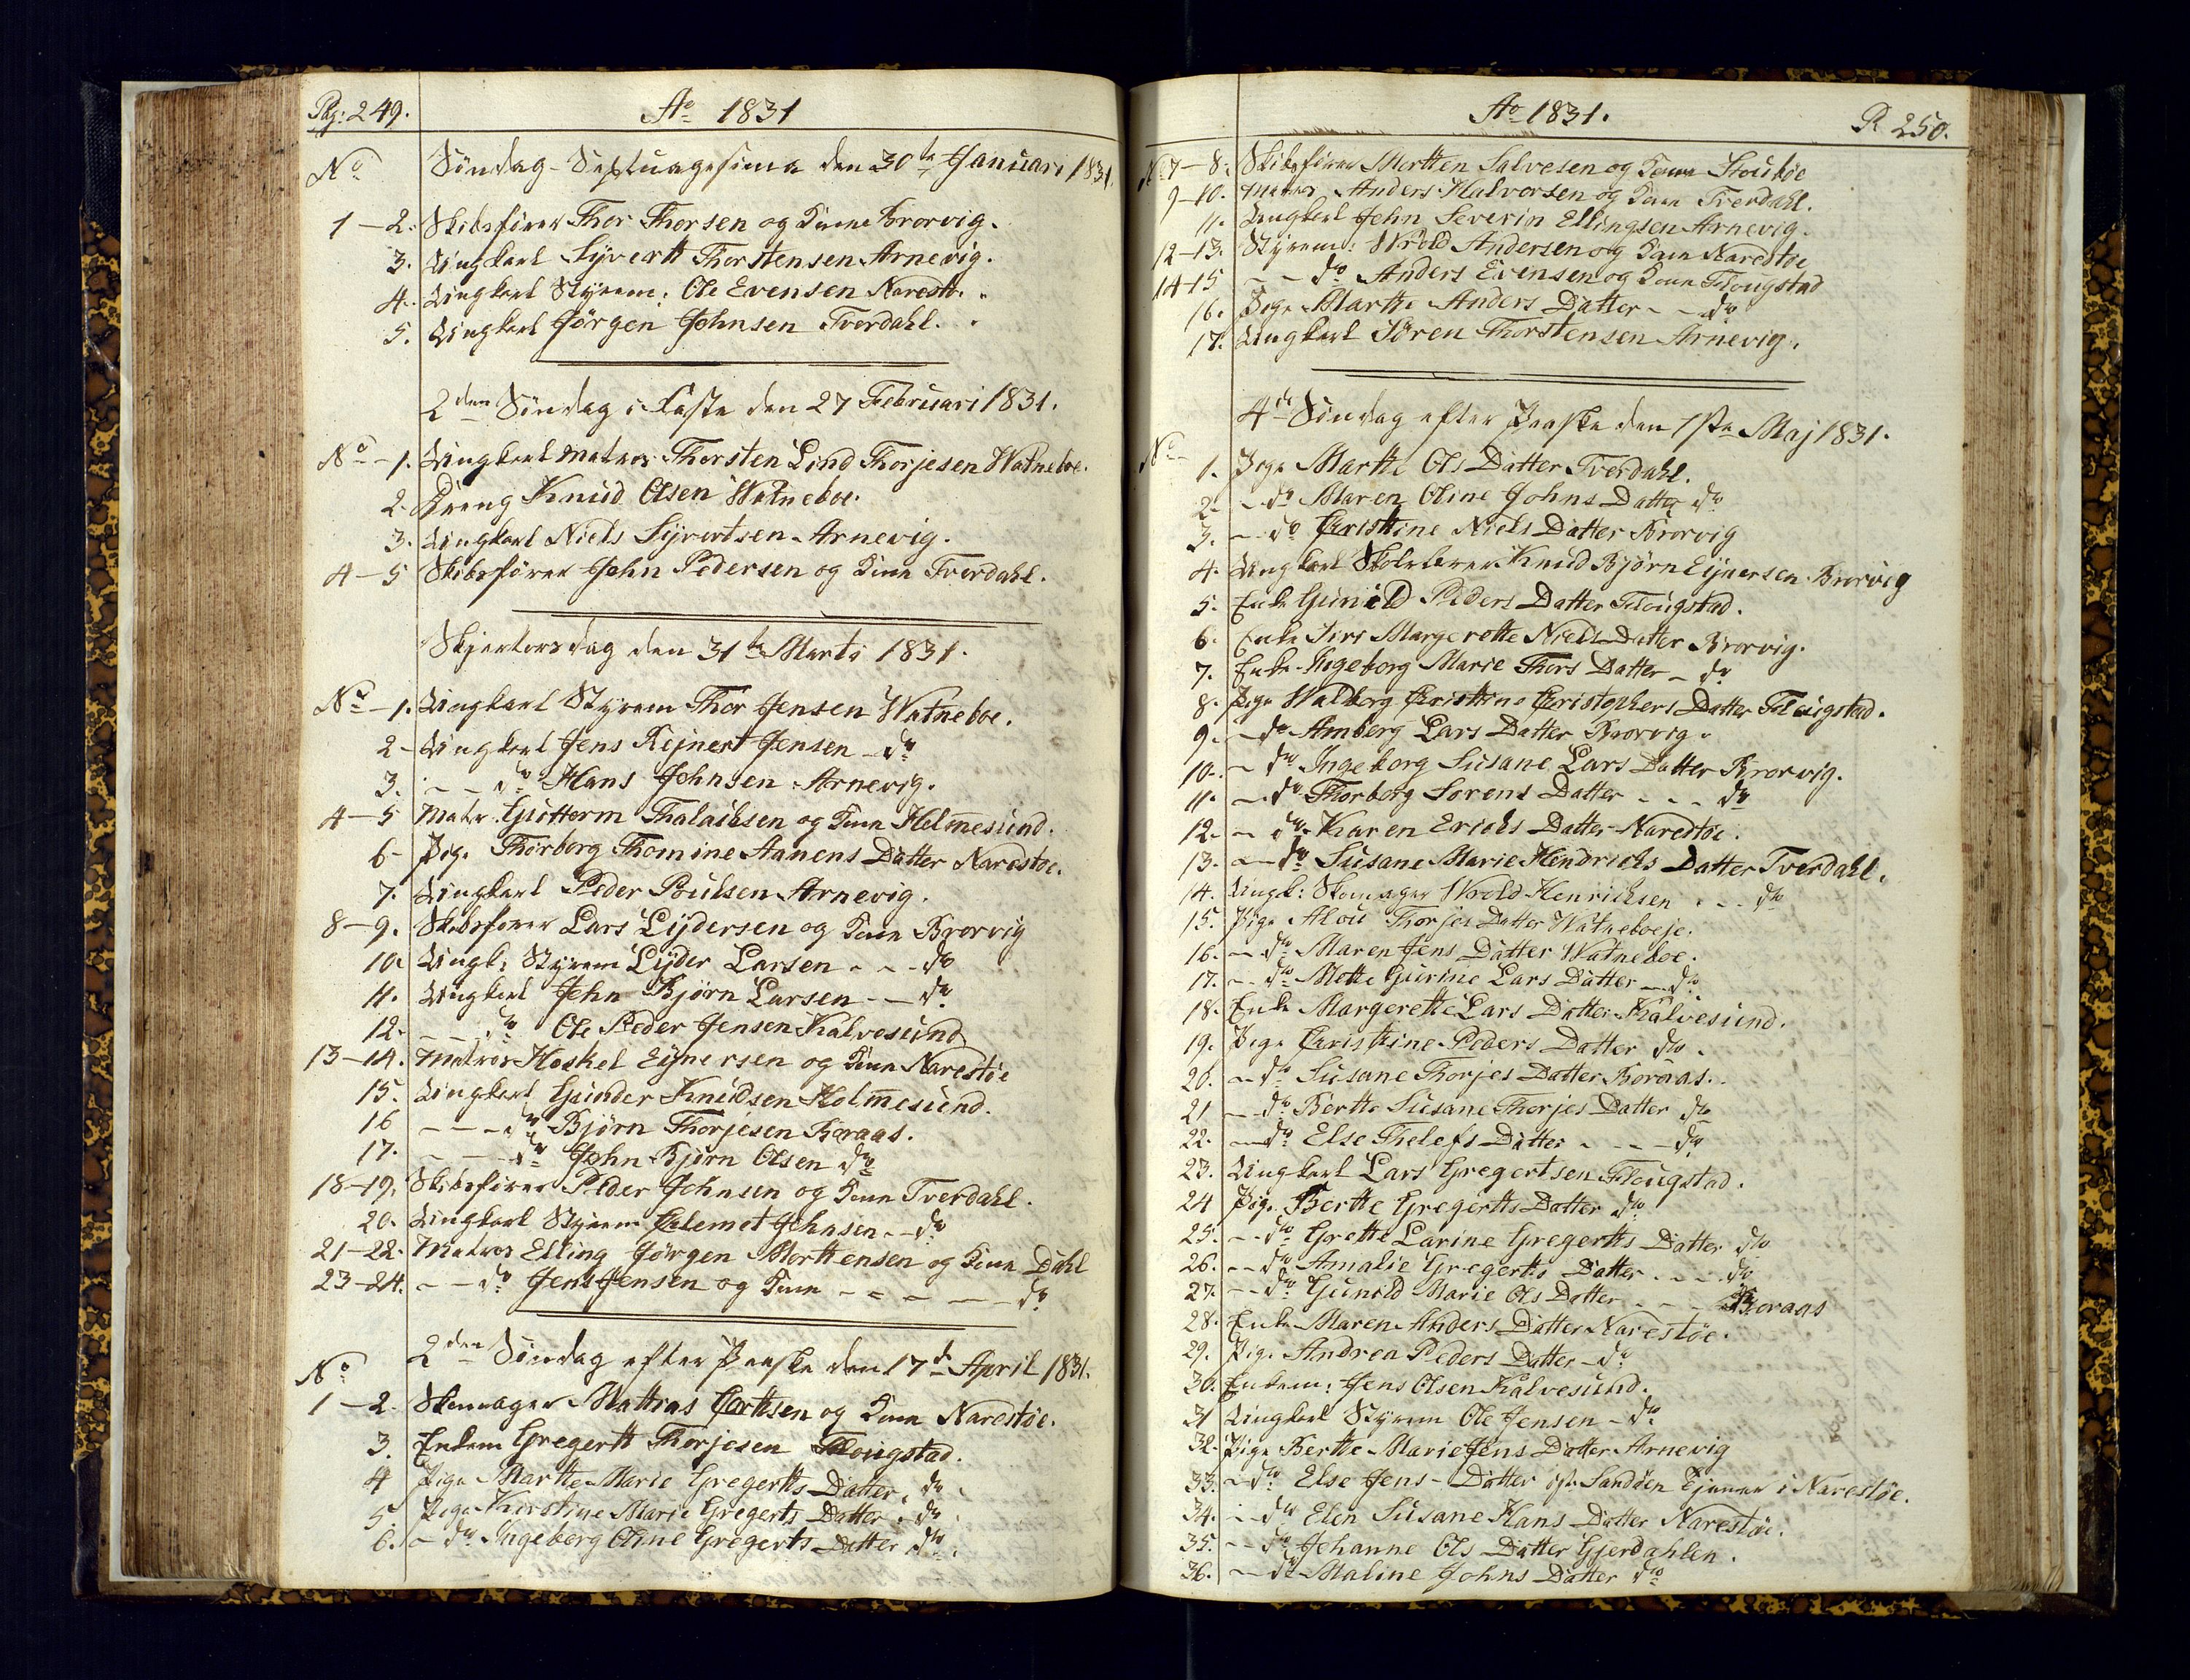 Pag: 249.
Ao 1831
No Söndag Septuagesima den 30te Januari 1831.
1-2. Skibsförer Thor Thorsen og Kone Brorvig.
3. Ungkarl Syvertt Thorstensen Arnevig.
4. Ungkarl Styrem: Ole Evensen Narestö.
5. Ungkarl Jörgen Johnsen Tverdahl.
2den Söndag i Faste den 27 Februari 1831.
No - 1. Ungkarl Matros Thorsten Lind Thorjesen Watneboe.
2. Dreng Knud Olsen Watneboe.
3. Ungkarl Niels Syvertsen Arnevig.
4-5 Skibsförer John Pedersen og Kone Tverdahl.
Skjertorsdag den 31te Marts 1831.
No - 1. Ungkarl Styrem Thor Jensen Watneboe.
2- Ungkarl Jens Rejnert Jensen - do
3. - - do Hans Johnsen Arnevig.
4-5 Matr. Guttorm Thalachsen og Kone Helmesund.
6- Pige Thorborg Thomine Aanens Datter Narestöe.
7. Ungkarl Peder Poulsen Arnevig.
8-9. Skibsförer Lars Lydersen og Kone Brorvig
10. Ungk: Styrem Lyder Larsen - - do
11. Ungkarl John Bjørn Larsen - - do
12. - - do Ole Peder Jensen Kalvesund
13-14. Matros Hoskel Eynersen og Kone Narestöe
15. Ungkarl Gunder Knudsen Holmesund.
16 - - - do Bjørn Thorjesen Boraas.
17. - - - do John Bjørn Olsen do
18-19. Skibsförer Peder Johnsen og Kone Tverdahl.
20. Ungkarl Styrem Clemet Johnsen - - do
21-22. Matros Elling Jörgen Morttensen og Kone Dahl
23-24. - - do Jens Jensen og Kone - - - - do
No 2den Söndag efter Paaske den 17de April 1831.
1-2. Skomager Mattias Carttsen og Kone Narestöe.
3. Enkem Gregertt Thorjesen Flougstad.
4 Pige Martte Marie Gregertts Datter. do
5. Pige Kirstine Marie Gregerts Datter. do
6. - do Ingeborg Oline Gregerts Datter do
Ao 1831.
P. 250.
No 7-8. Skibsförer Mortten Salvesen og Kone Stouböe
9-10. Matros Anders Halvorsen og Kone Tverdahl.
11. Ungkarl John Severin Ellingsen Arnevig.
12-13. Styrem: Wrold Andersen og Kone Narestöe
14-15 - - do Anders Evensen og Kone Flougstad
16. Pige Martte Anders Datter - - do
17. Ungkarl Sören Thorstensen Arnevig.
4de Söndag efter Paaske den 1ste Maj 1831.
No 1. Pige Martte Ols Datter Tverdahl.
2. - do Maren Oline Johns Datter do
3. - do Christtine Niels Datter Brorvig
4. Ungkarl Skolelærer Knud Bjørn Eynersen Brorvig
5. Enke Gunild Peders Datter Flougstad.
6. Enke Sirs Margerette Niels Datter Brorvig.
7. Enke Ingeborg Marie Thors Datter - do
8. Pige Walborg Christtine Christophers Datter Flougstad.
9. - do Amberg Lars Datter Brorvig.
10. - do Ingeborg Susane Lars Datter Brorvig.
11. - do Thorborg Sorens Datter - - - do
12. - do Karen Erichs Datter Narestöe.
13. - do Susane Marie Hendrichs Datter Tverdahl.
14. Ungk: Skomager Wrold Henrichsen - - - do
15. Pige Alous Thorjes Datter Watneboeje.
16. - do Maren Jens Datter Watneboe.
17. - - do Mette Gurine Lars Datter - do
18. Enke Margerette Lars Datter Kalvesund.
19. Pige Christtine Peders Datter do.
20. - do Susane Thorjes Datter Boraas.
21 - do Bertte Susane Thorjes Datter do
22. - do Else Thelefs Datter - - - do
23. Ungkarl Lars Gregertsen Flougstad.
24 Pige Bertte Gregertts Datter do
25. - - do Grette Larine Gregertts Datter do
26. - - do Amalie Gregertts Datter - - - do
27. - - do Gunild Marie Ols Datter - - - Boraas
28. Enke Maren Anders Datter Narestöe.
29. Pige Andrea Peders Datter - do
30. Enkem: Jens Olsen Kalvesund.
31 Ungkarl Styrem Ole Jensen - do
32. Pige Bertte Marie Jens Datter Arnevig
33. - do Else Jens - Datter Sandöen tjener i Narestöe.
34. - do Elen Susane Hans Datter Narestöe.
35. - - do Johanne Ols Datter Gjerdahlen.
36. - do Maline Johns Datter do